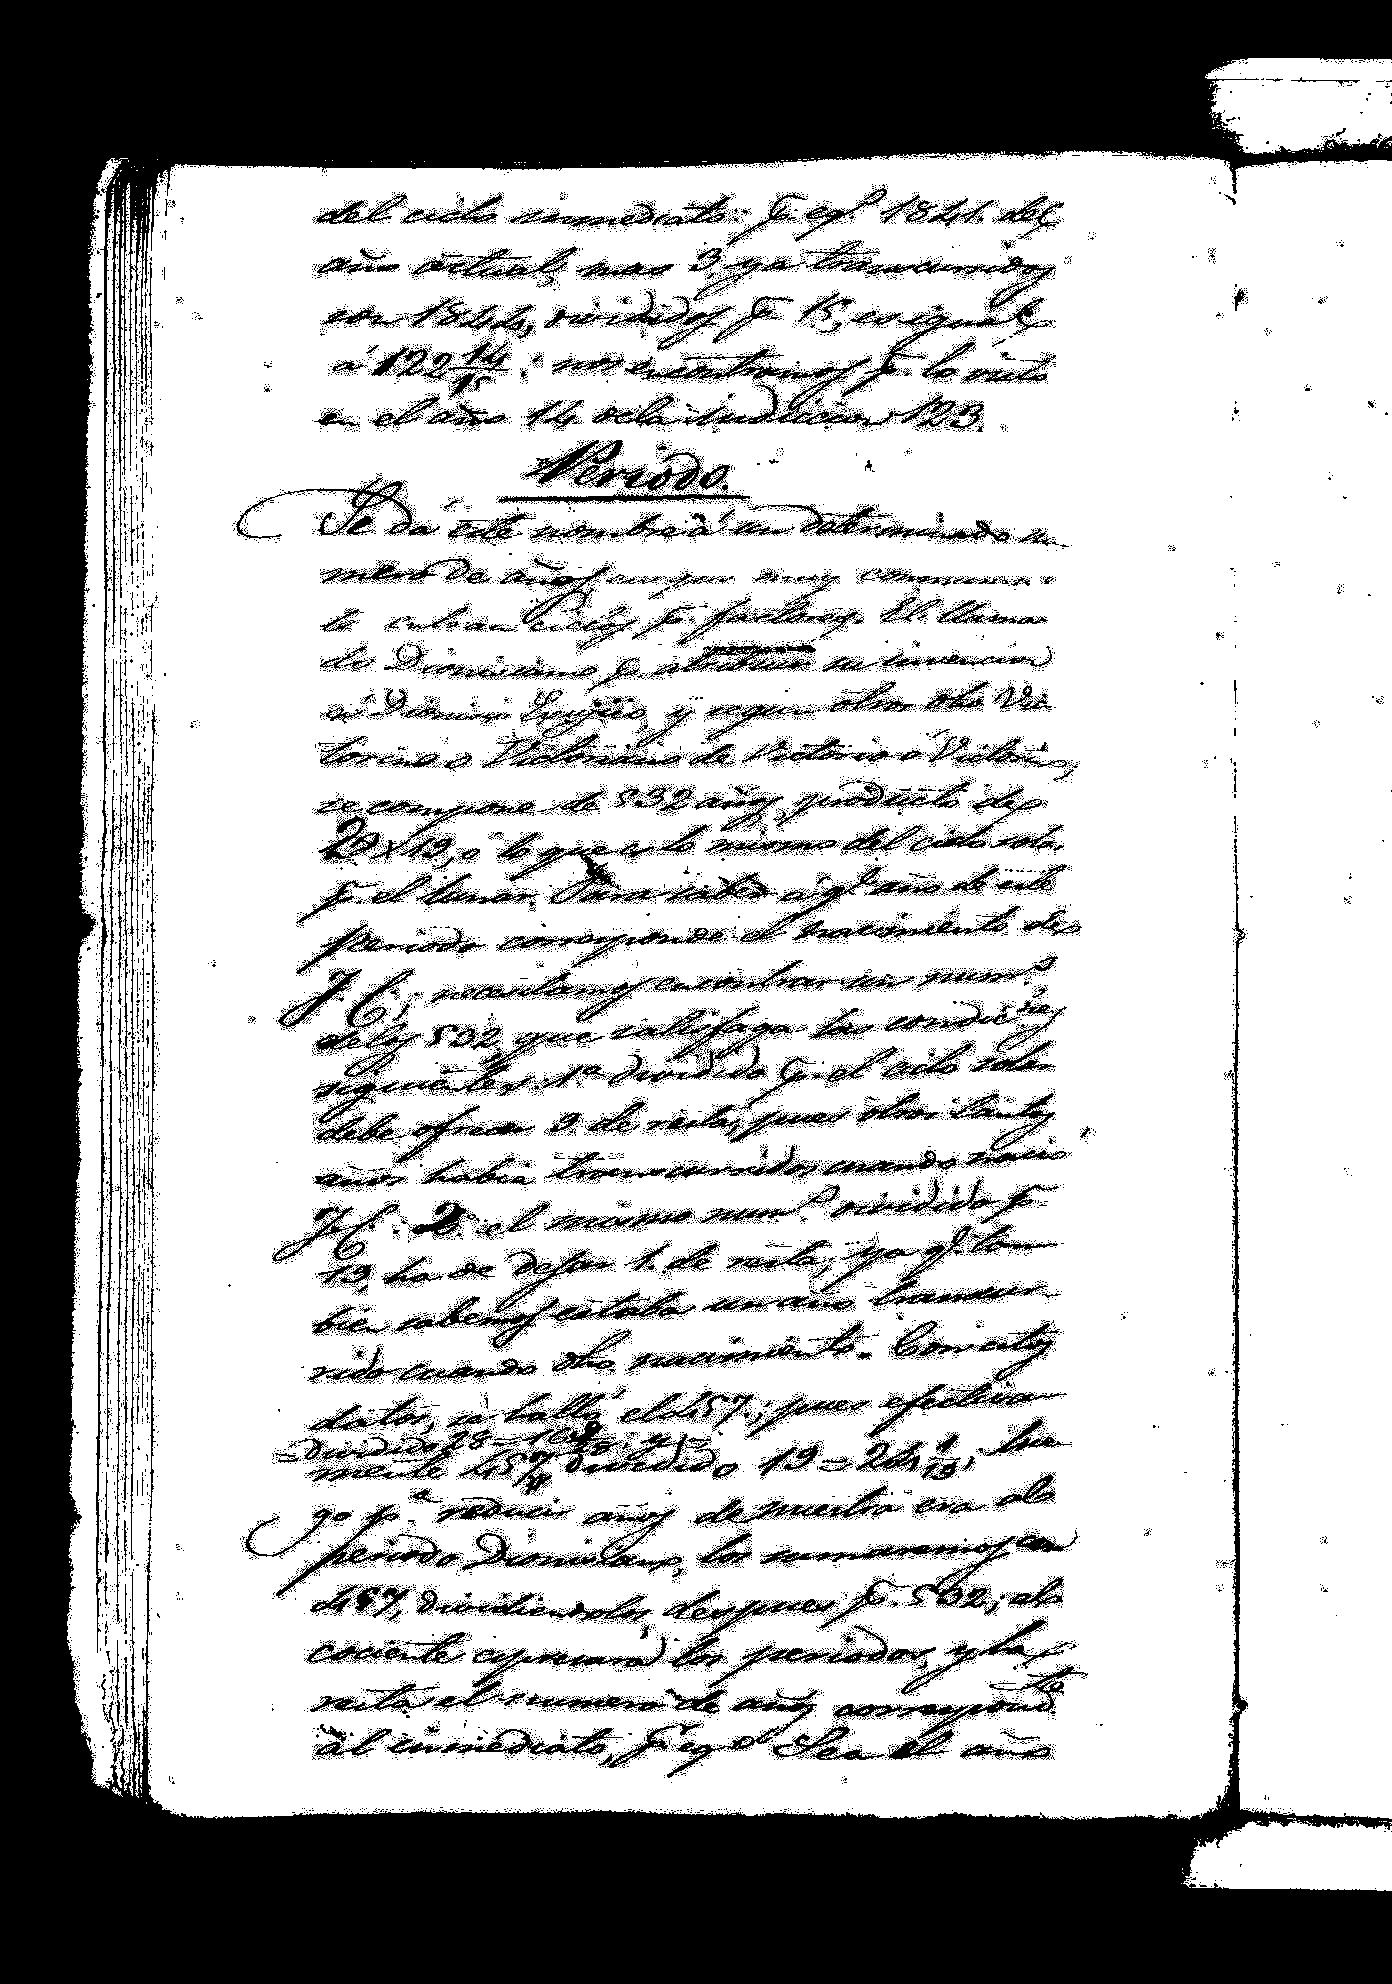 del ciclo inmediato: p.r ej.o 1841 del
año actual, mas 3 ya transcurridos
son 1844, divididos p.r 15, es igual
á 122 14/15: nos encontramos p.r lo visto
en el año 14 de la indiccion 123.
Periodo.
Se da este nombre á un determinado nu
mero de años aunque muy communm.
te entran ciclos p.r factores. El llama
do Dionisiano p.r su invencion
á Dionisio y segun otros dho Vic
torino o Victoriano de Victorio o Victorino,
se compone de 532 años, producto de
28 x 19, o lo que es lo mismo del ciclo solar
p.r el lunar. Para saber á q.l año de este
periodo corresponde el nacimiento de
J. C., necesitamos encontrar un num.o
de los 532 que satisfaga las condic.nes
siguientes: 1a dividido p.r el ciclo solar
debe ofrecer 9 de resta, pues otros tantos
años habia transcurridos cuando nació
J. C.: 2a el mismo num.o dividido p.r
19, ha de dejar 1. de resta, ya q.e tam
bien sabemos estaba un año transcur
rido cuando dho nacimiento. Con estos
datos, se halló el 457; pues efectiva
= dividido 28 = 16 9/28 y =
mente 457 dividido 19 = 24 1/19; lue
go p.a reducir años de nuestra era al
periodo Dionisiano, los sumaremos con
457, dividiendolos despues p.r 532; el
cociente espresará los periodos, y la
resta el numero de años correspond.te
al inmediato, p.r ej.o Sea el año